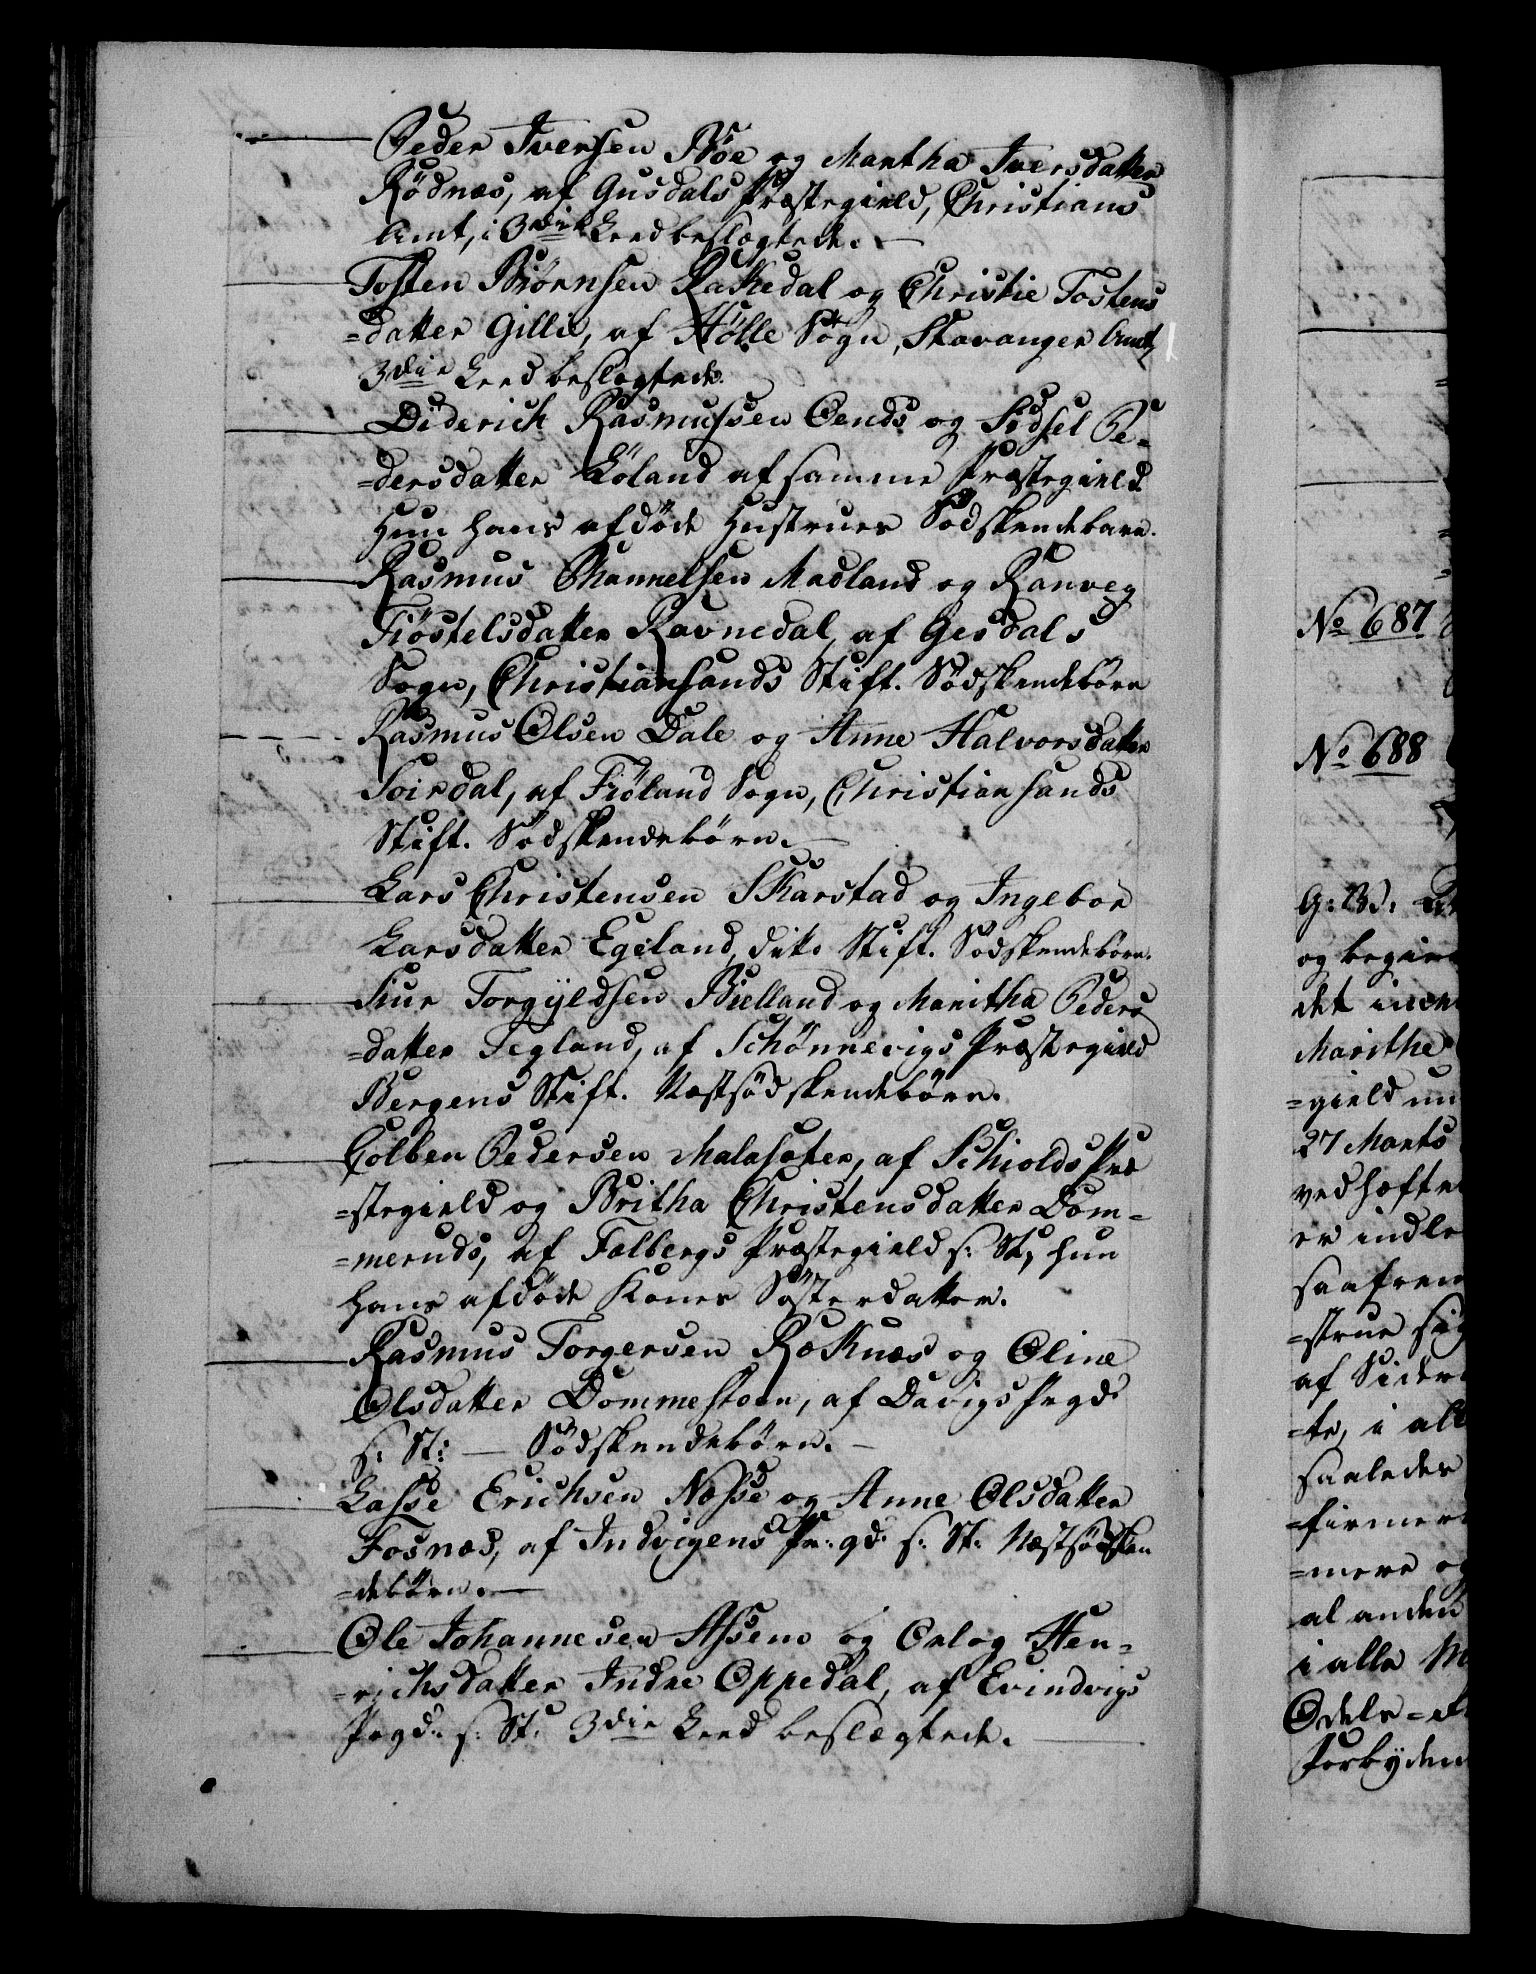 Peder Iversen Bøe og Martha Iversdatter
Rödnæs, af Gusdals Præstegield, Christians
Amt, i 3die Leed beslægtede. —
Tosten Biørnsen Rakedal og Christie Tostens
=datter Gillie, af Hölle Sogn, Stavanger Amt,
3die Leed beslægtede.
Diderich Rasmussen Oends og Sidsel Pe-
=dersdatter Löland af samme Præstegield
Hun hans afdöde Hustrues Södskendebarn.
Rasmus Channelsen Madland og Ranveg
Fiöstelsdatter Ravnedal, af Gesdals
Sogn, Christiansands Stift. Södskendebörn
Rasmus Olsen Dale og Anne Halvorsdatter
Soirdal, af Fiöland Sogn, Christiansands
Stift. Södskendebörn. —
Lars Christensen Skarstad og Ingebor
Larsdatter Egeland, dito Stift. Södskendebörn.
Siur Torgÿldsen Bielland og Maritha Peders
=datter Tegland, af Schönnevigs Præstegield
Bergens Stift. Næstsödskendebörn.
Colben Pedersen Malasæter, af Schiolds Præ
=stegield og Britha Christensdatter Dom-
=meruds, af Falbergs Præstegield s: St, hun
hans afdöde Kones Sösterdatter.
Rasmus Torgersen Ræknæs og Oline
Olsdatter Dommesteen, af Davigs Prgd:
s: St: — Södskendebörn. —
Lasse Erichsen Næsse og Anne Olsdatter
Fosnæs, af Indvigens Pr: gd: s: St: Næstsödsken
=debörn. —
Ole Johannesen Assem og Orlog Hen-
=richsdatter Indre Oppedal, af Evindvigs
Prgd: s: St: 3die Leed beslægtede. —
No 687
No 688
G: B:
og begier
det ind
Marithe
=gield un
27 Marts
vedhæfte
er indle
saafrem
=strue sig
af Sider
=te, i al
saaledes
=firmer
=mere og
al anden
i alle M
Odels=
Forbyden